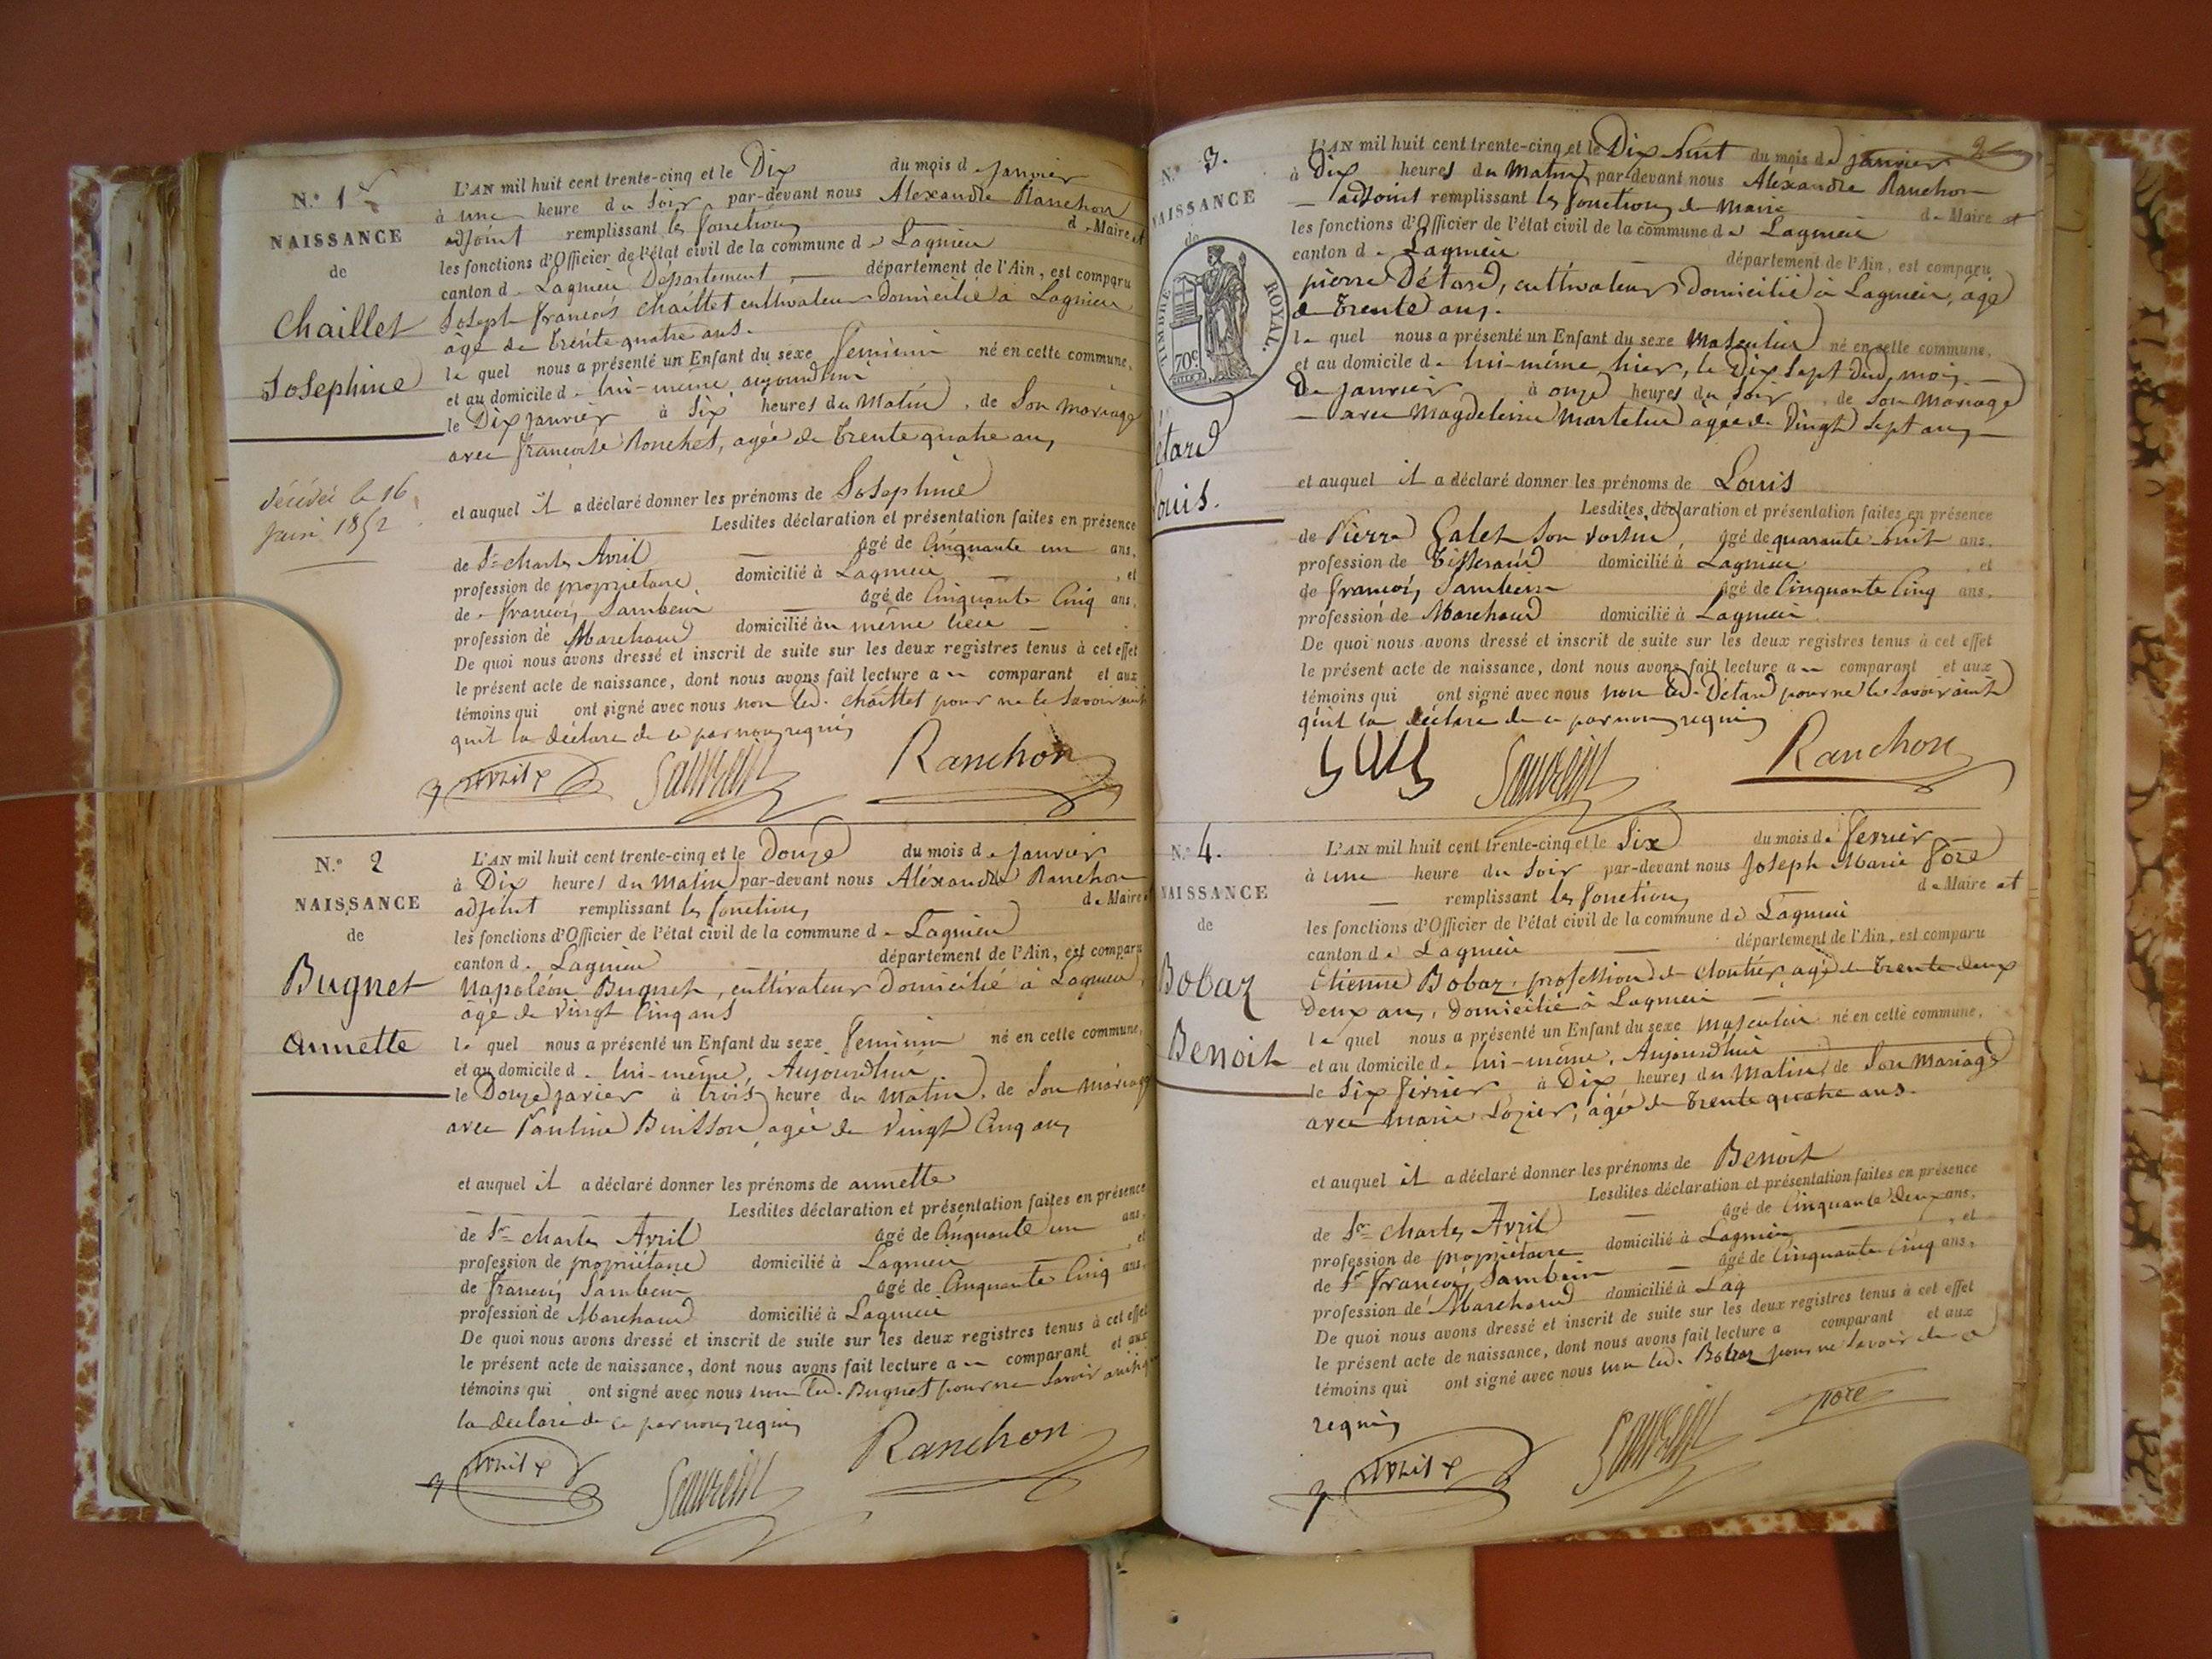 N.° 1
NAISSANCE
de
Chaillet
Josephine
décédée le 16
juin 1852
L'AN mil huit cent trente-cinq et le Dix du mois de janvier
à une heure du Soir par-devant nous Alexandre Ranchon
adjoint remplissant les fonctions de Maire et
les fonctions d'Officier de l'état civil de la commune de Lagnieu
canton de Lagnieu Département — département de l'Ain, est comparu
Joseph françois Chaillet cultivateur domicilié à Lagnieu
âgé de trente quatre ans.
le quel nous a présenté un Enfant du sexe feminin né en cette commune,
et au domicile de lui-même aujourd'hui
le Dix janvier à Six heures du Matin, de Son mariage
avec françoise Ronchet, agée de trente quatre ans
et auquel il a déclaré donner les prénoms de Josephine
Lesdites déclaration et présentation faites en présence
de Sr Charles Avril — âgé de Cinquante un ans,
profession de propriétaire domicilié à Lagnieu — , et
de françois Sambein — âgé de Cinquante Cinq ans,
profession de Marchand domicilié au même lieu —
De quoi nous avons dressé et inscrit de suite sur les deux registres tenus à cet effet
le présent acte de naissance, dont nous avons fait lecture au comparant et aux
témoins qui ont signé avec nous non led. Chaillet pour ne le Savoir ainsi
quil la déclaré de ce par nous requis
Avril Ranchon
N.° 2
NAISSANCE
de
Bugnet
annette
L'AN mil huit cent trente-cinq et le Douze du mois de janvier
à Dix heures du Matin par-devant nous Aléxandre Ranchon
adjoint remplissant les fonctions de Maire et
les fonctions d'Officier de l'état civil de la commune de Lagnieu
canton de Lagnieu département de l'Ain, est comparu
Napoléon Bugnet, cultivateur Domicilié à Lagnieu,
âgé de vingt Cinq ans
le quel nous a présenté un Enfant du sexe feminin né en cette commune,
et au domicile de lui-même, Aujourd'hui
le Douze javier à trois heure du Matin, de Son mariage
avec Pauline Buisson agée de Vingt Cinq ans
et auquel il a déclaré donner les prénoms de annette
Lesdites déclaration et présentation faites en présence
de Sr Charles Avril âgé de Cinquante un ans,
profession de propriétaire domicilié à Lagnieu — , et
de françois Sambein âgé de Cinquante Cinq ans,
profession de Marchand domicilié à Lagnieu
De quoi nous avons dressé et inscrit de suite sur les deux registres tenus à cet effet
le présent acte de naissance, dont nous avons fait lecture au comparant et aux
témoins qui ont signé avec nous non led. Bugnet pour ne Savoir ainsi
la déclaré de ce par nous requis
Avril Ranchon
N.° 3.
NAISSANCE
de
TIMBRE ROYAL.
70c
étard
Louis.
L'AN mil huit cent trente-cinq et le Dix huit du mois de janvier
à Dix heures du Matin par-devant nous Aléxandre Ranchon
— adjoint remplissant les fonctions de Maire de Maire et
les fonctions d'Officier de l'état civil de la commune de Lagnieu
canton de Lagnieu — département de l'Ain, est comparu
pierre Détard, cultivateur domicilié à Lagnieu, âgé
de trente ans.
le quel nous a présenté un Enfant du sexe Masculin né en cette commune,
et au domicile de lui-même hier, le Dix Sept dud. mois —
de janvier à onze heures du Soir, de Son Mariage
— avec Magdeleine Martelin âgée de Vingt Sept ans —
et auquel il a déclaré donner les prénoms de Louis
Lesdites déclaration et présentation faites en présence
de Pierre Galet Son voisin, âgé de quarante huit ans,
profession de Tisserand domicilié à Lagnieu , et
de françois Sambein âgé de Cinquante Cinq ans,
profession de Marchand domicilié à Lagnieu
De quoi nous avons dressé et inscrit de suite sur les deux registres tenus à cet effet
le présent acte de naissance, dont nous avons fait lecture au comparant et aux
témoins qui ont signé avec nous non led. Détard pour ne le Savoir ainsi
quil la déclaré de ce par nous requis
Ranchon
N.° 4.
NAISSANCE
de
Bobaz
Benoit
L'AN mil huit cent trente-cinq et le Six du mois de ferrier —
à une heure du Soir par-devant nous Joseph Marie foré
— remplissant les fonctions de Maire et
les fonctions d'Officier de l'état civil de la commune de Lagnieu
canton de Lagnieu — département de l'Ain, est comparu
Etienne Bobaz, profession de Cloutier agé de trente deux
Deux ans, domicilié à Lagnieu —
le quel nous a présenté un Enfant du sexe masculin né en cette commune,
et au domicile de lui-même, Aujourd'hui
le Six férrier à Dix heures du Matin, de Son Mariage
avec Marie Lozier, âgée de trente quatre ans.
et auquel il a déclaré donner les prénoms de Benoit
Lesdites déclaration et présentation faites en présence
de Sr Charles Avril — âgé de Cinquante Deux ans,
profession de propriétaire domicilié à Lagnieu — , et
de Sr françois Sambein — âgé de Cinquante Cinq ans,
profession de Marchand domicilié à Lag
De quoi nous avons dressé et inscrit de suite sur les deux registres tenus à cet effet
le présent acte de naissance, dont nous avons fait lecture a comparant et aux
témoins qui ont signé avec nous non led. Bobaz pour ne Savoir de ce
requis
Avril foré